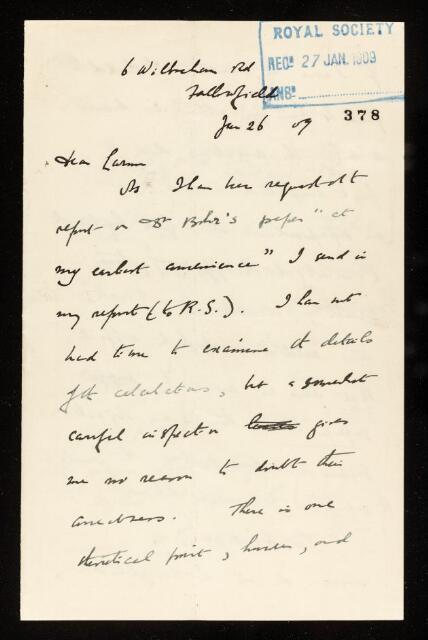 ROYAL SOCIETY
REC^D 27 JAN. 1909
ANS^D
378
6 Wilbraham Rd
Fallowfield
Jan 26 09
Dear Larmor
As I have been requested to
report on Dr Bohr's paper "at
my earliest convenience" I send in
my report (to R.S.). I have not
had time to examine the details
of the calculations, but a somewhat
careful inspection gives
me no reason to doubt their
correctness. There is one
theoretical point, however, and